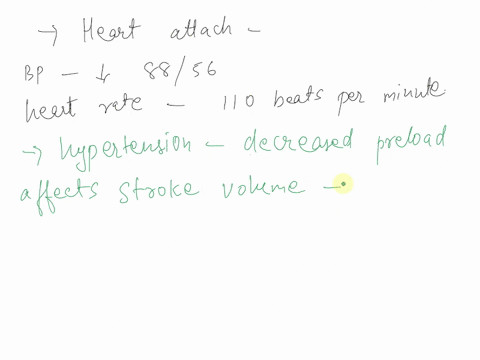 → Heart attach –
BP – ↓ 88/56
heart rate – 110 beats per minute.
→ hypertension – decreased preload
affects stroke volume –